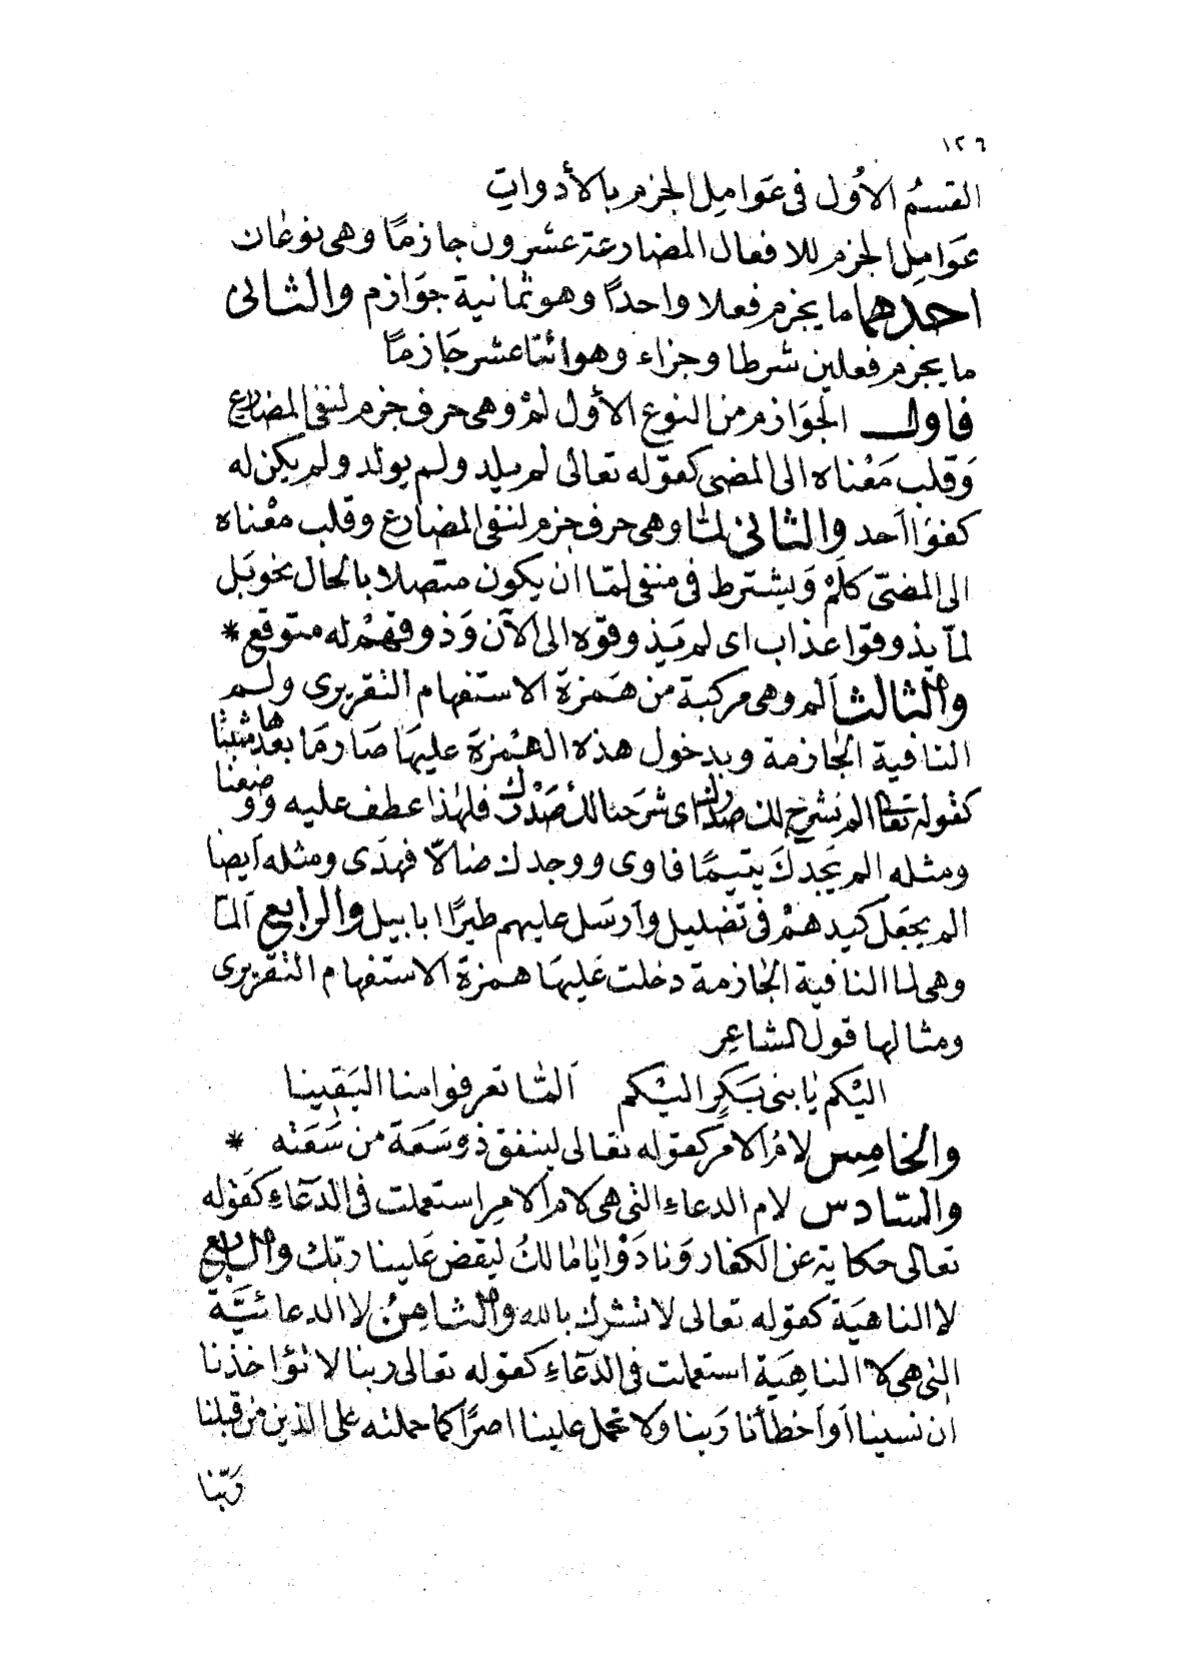 ١٢٦
القسمُ الاَول فى عَوامِل الجزم بالأدواتِ
عَوامِل الجزم للافعال المضارعة عشرون جازمًا وهى نوعان
احدهما ما يجزم فعلا واحدًا وهو ثمانية جوَازم والثانى
ما يجزم فعلين شرطا وجزاء وهو اثنتا عشر جَازمًا
فاول الجَوَازم من النوع الأول لمْ وهى حرف جزم لنفى المضارع
وَقلب مَعْناه الى المضى كقوْله تعالى لم يلد ولم يولد ولم يكن له
كفوَا اَحد والثانى لمَّا وهى حرف جزم لنفى المضارع وقلب معْناه
الى المضىّ كلَمْ وَيشترط فى منفى لمّا ان يكون متصلا بالحال نحو بَل
لمّا يذوقوا عذاب اى لم يَذوقوه الى الآن وَذوقهمْ له متوقع *
والثالث اَلم وهى مركبة من هَمزة الاستفهام التقريرى ولم
النافية الجازمة وبدخول هذه الهمْزة عليهَا صَار مَا بعْدها مثبتًا
كقوله تعالى الم نشرح لك صدرك اى شرَحنا لك صَدْرك فلهٰذا عطف عليه ووضعنا
ومثله الم يَجدكَ يتيمًا فاوى ووجدك ضالاّ فهدَى ومثله اَيضا
الم يجعَل كيدهمْ فى تضليل وَاَرسَل عليهم طيرًا ابابيل والرابع اَلمّا
وهى لما النافية الجٰازمة دخلت عَليهَا همزة الاستفهام التقريرى
ومثالها قول الشاعِر
اليْكم يٰا بنى بَكرٍ اليْكم اَلمّٰا تعرفوا منا اليَقينا
والخامِس لامُ الامر كقوله تعالى لينفق ذو سَعَة من سَعَته *
والسَّادس لام الدعاءِ التى هى لام الامرِ استعملت فى الدّعَاءِ كقوْله
تعالى حكاية عن الكفار وَنادَوْا يٰا مٰالكُ ليقض عَلينا رَبّك والسابع
لا الناهيَة كقوله تعالى لا تشرك بالله والثامِنُ لا الدعائيَّة
التى هى لا الناهِيَة استعملت فى الدّعَاءِ كقوله تعالى ربنا لا تؤاخذنا
ان نسينا اَو اَخطأنا رَبنا وَلا تحمل علينا اصرًا كما حملته على الذين من قبلنا
رَبّنا